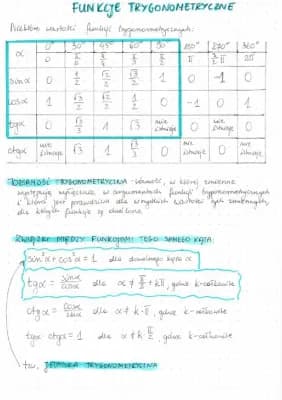 FUNKCJE TRYGONOMETRYCZNE
Przegląd wartości funkcji trygonometrycznych:
α 0° 30° 45° 60° 90° 180° 270° 360°
0 π/6 π/4 π/3 π/2 π 3/2 π 2π
sinα 0 1/2 √2/2 √3/2 1 0 -1 0
cosα 1 √3/2 √2/2 1/2 0 -1 0 1
tgα 0 √3/3 1 √3 nie istnieje 0 nie istnieje 0
ctgα nie istnieje √3 1 √3/3 0 nie istnieje 0 nie istnieje
TOŻSAMOŚĆ TRYGONOMETRYCZNA - równość, w której zmienne
występują wyłącznie w argumentach funkcji trygonometrycznych
i która jest prawdziwa dla wszystkich wartości tych zmiennych,
dla których funkcje są określone
ZWIĄZKI MIĘDZY FUNKCJAMI TEGO SAMEGO KĄTA
sin²α + cos²α = 1 dla dowolnego kąta α
tgα = sinα/cosα dla α ≠ π/2 + kπ, gdzie k-całkowite
ctgα = cosα/sinα dla α ≠ k·π, gdzie k-całkowite
tgα · ctgα = 1 dla α ≠ k π/2, gdzie k-całkowite
tzw. JEDYNKA TRYGONOMETRYCZNA